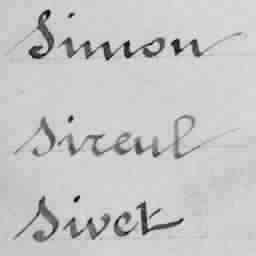 Simon
Sireul
Sivet